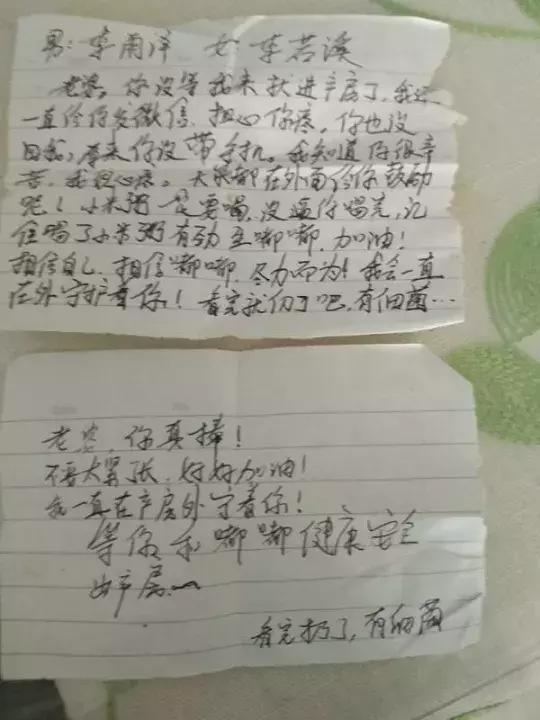 男：李雨泽 女 李若溪
老婆，你没等我来就进产房了，我还
一直给你发微信，担心你疼。你也没
回我，原来你没带手机。我知道你很辛
苦，我很心疼。大家都在外面给你鼓励
呢！小米粥一定要喝，没逼你喝完，记
住喝了小米粥有劲生嘟嘟，加油！
相信自己，相信嘟嘟，尽力而为！我会一直
在外守护着你！看完就扔了吧，有细菌…
老婆，你真棒！
不要太紧张，好好加油！
我一直在产房外守着你！
等你和嘟嘟健康安全
出产房
看完扔了，有细菌